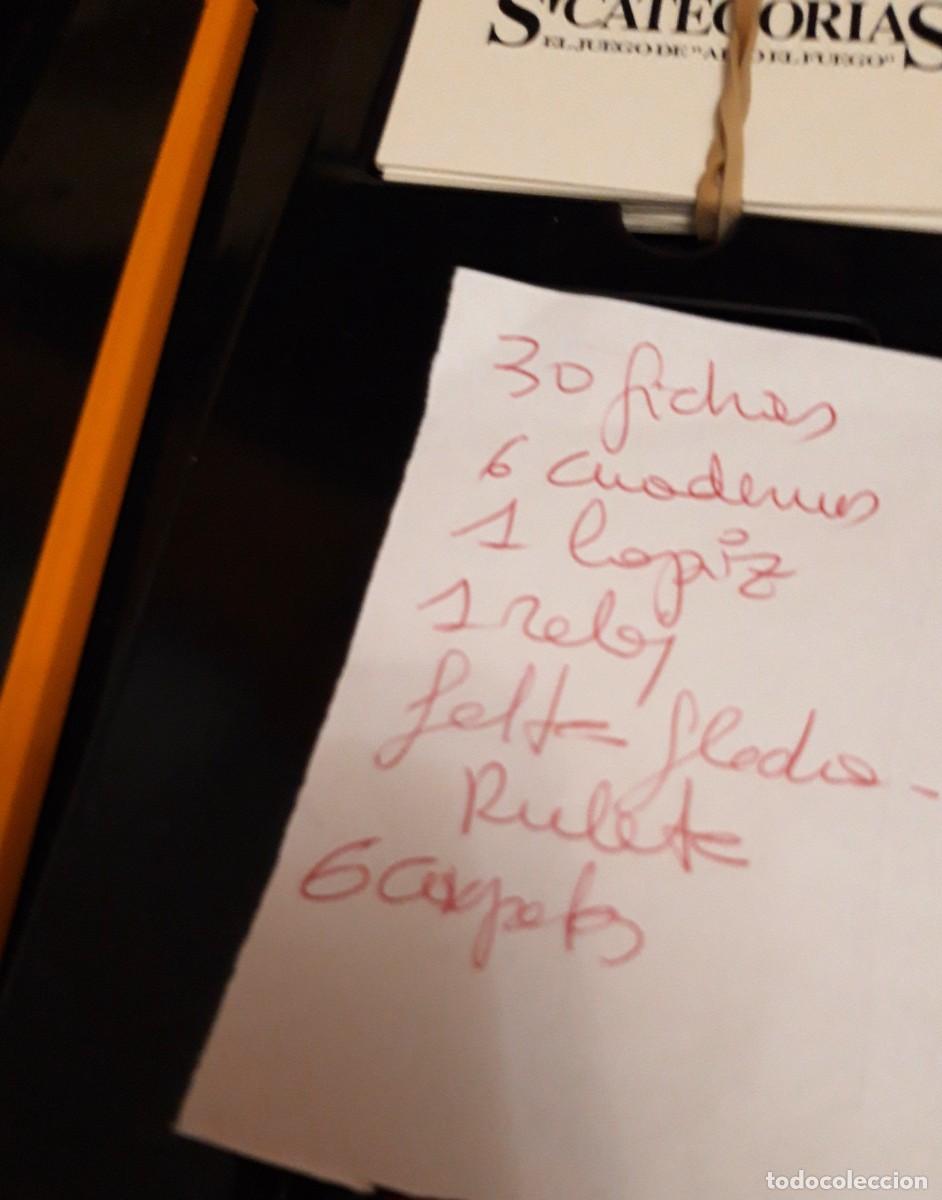 S'CATEGORIAS
EL JUEGO DE "ALTO EL FUEGO"
30 fichas
6 cuadernos
1 lapiz
1 reloj
falta flecha -
Ruleta
6 carpetas
todocoleccion